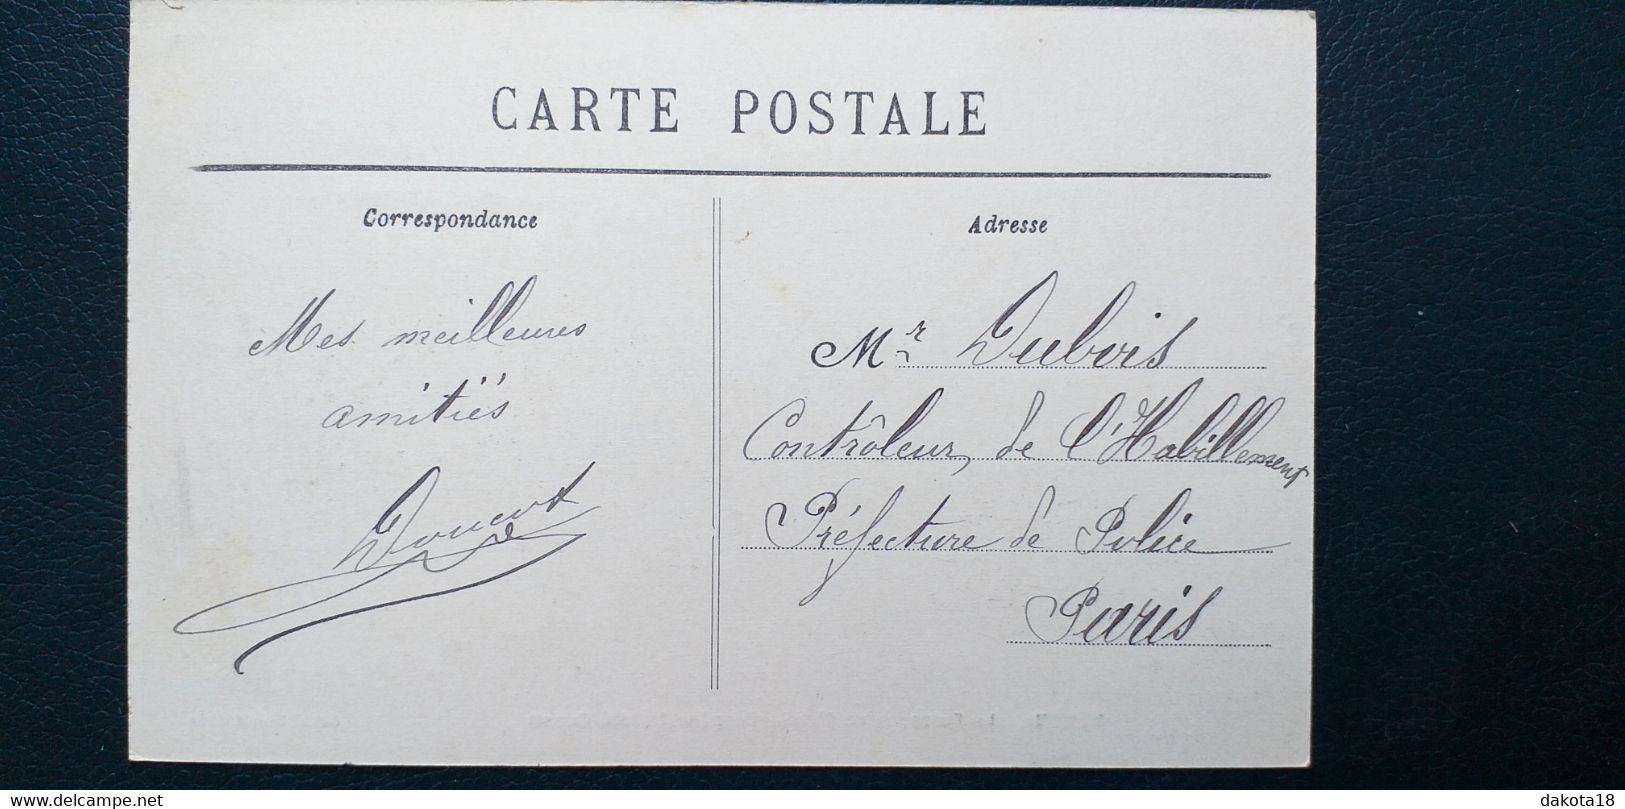 CARTE POSTALE
Correspondance
Mes meilleures
amitiés
Adresse
Mr Dubois
Contrôleur de l'Habillement
Préfecture de Police
Paris
www.delcampe.net
dakota18